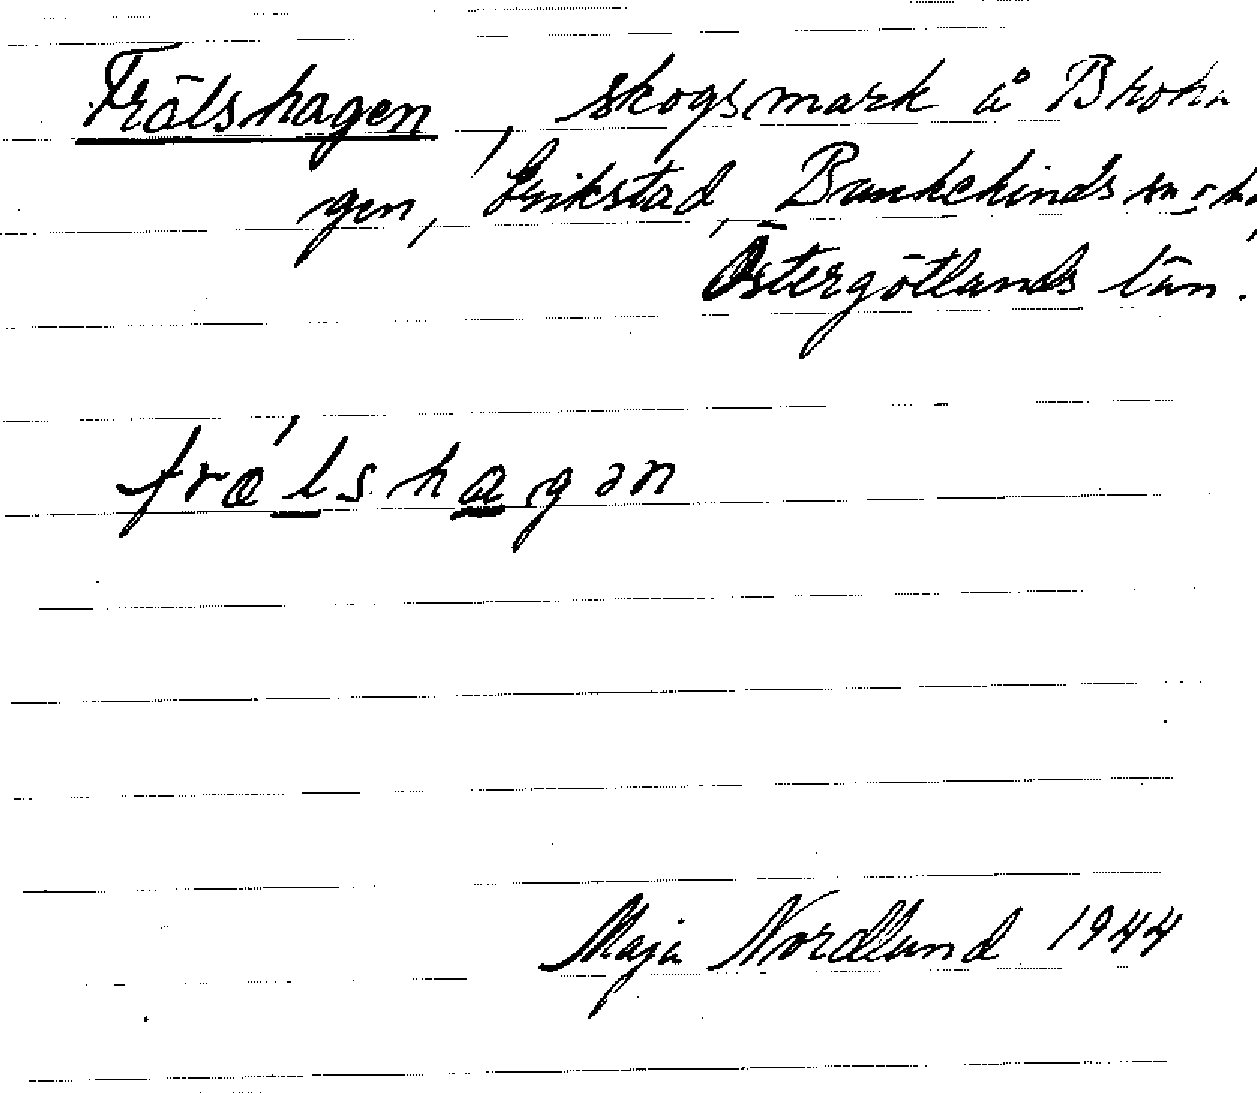 Frälshagen, skogsmark å Broha
gen, Erikstad, Bankekinds sn o hd,
Östergötlands län.
frä́lshagən
Maja Nordlund 1944